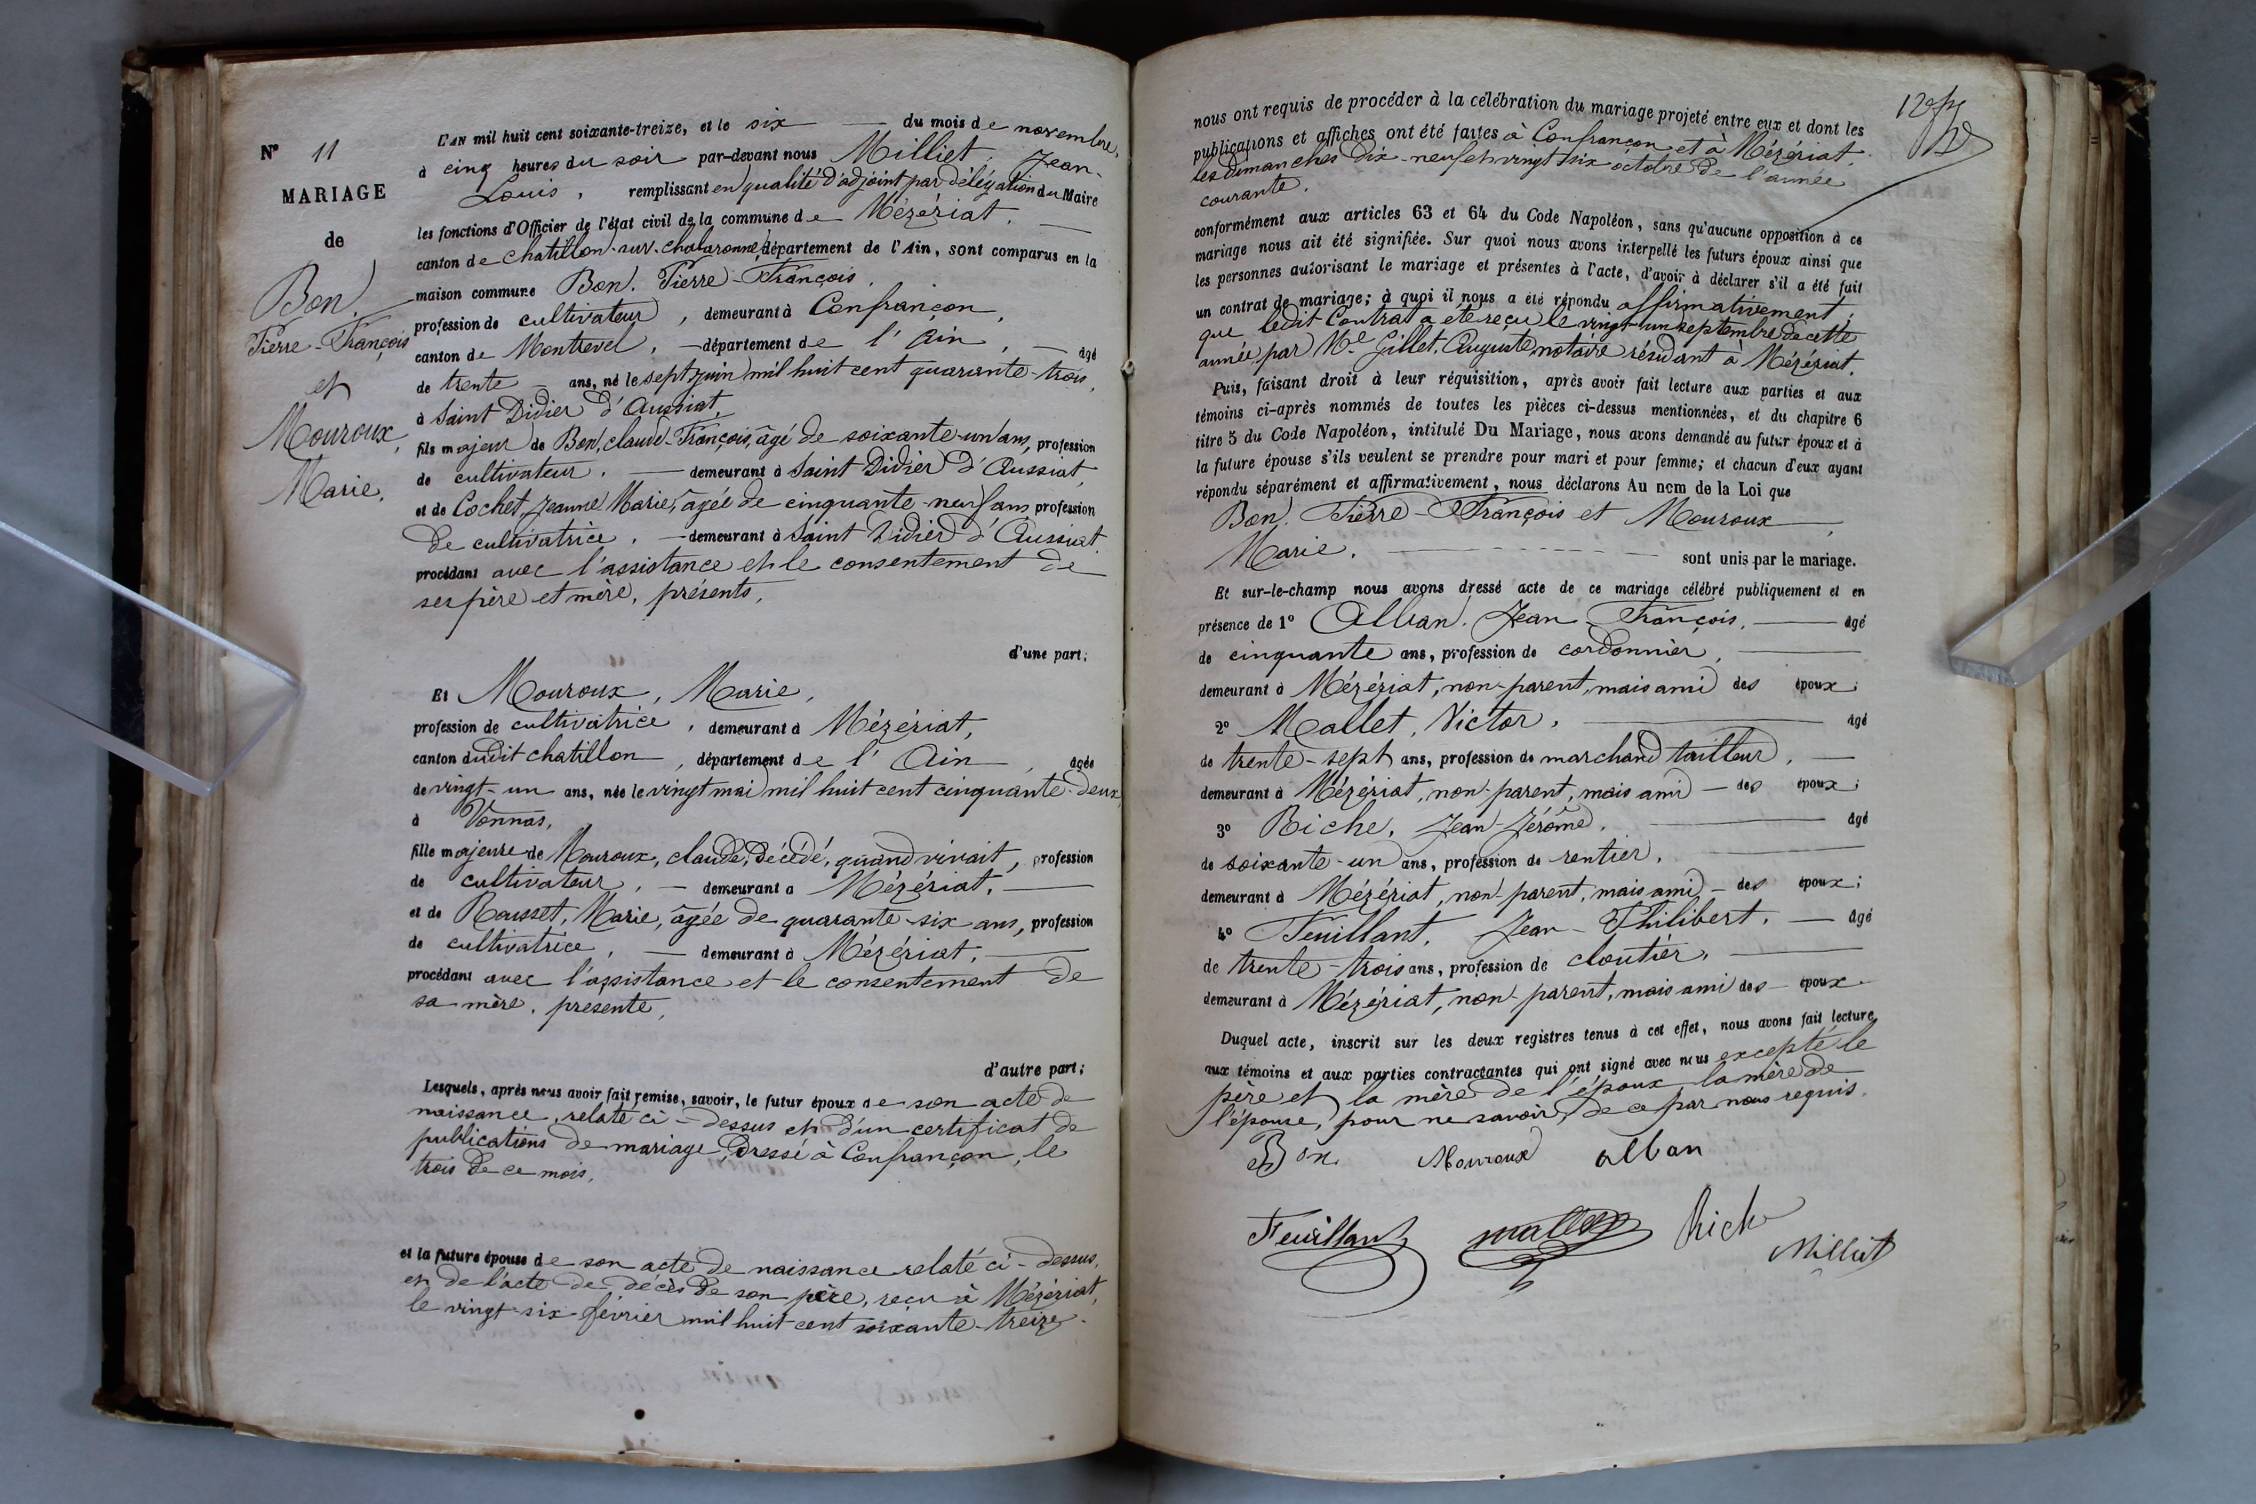 Nº 11
MARIAGE
de
Bon,
Pierre-François
et
Mouroux,
Marie.
L'AN mil huit cent soixante-treize, et le six du mois de novembre,
à cinq heures du soir par-devant nous Milliet, Jean-
Louis, remplissant en qualité d'adjoint par délégation du Maire
les fonctions d'Officier de l'état civil de la commune de Mézériat,
canton de Chatillon-sur-chalaronne, département de l'Ain, sont comparus en la
maison commune Bon, Pierre-François,
profession de cultivateur, demeurant à Confrançon,
canton de Montrevel, département de l'Ain, âgé
de trente ans, né le sept juin mil huit cent quarante-trois,
à Saint Didier d'Aussiat,
fils majeur de Bon, claude-François, âgé de soixante-un ans, profession
de cultivateur, demeurant à Saint Didier d'Aussiat,
et de Cochet, Jeanne Marie, âgée de cinquante-neuf ans, profession
de cultivatrice, demeurant à Saint Didier d'Aussiat,
procédant avec l'assistance et le consentement de
ses père et mère, présents,
d'une part;
Et Mouroux, Marie,
profession de cultivatrice, demeurant à Mézériat,
canton dudit chatillon, département de l'Ain, âgée
de vingt-un ans, née le vingt mai mil huit cent cinquante-deux,
à Vonnas,
fille majeure de Mouroux, claude, décédé, quand vivait, profession
de cultivateur, demeurant à Mézériat,
et de Rousset, Marie, âgée de quarante-six ans, profession
de cultivatrice, demeurant à Mézériat,
procédant avec l'assistance et le consentement de
sa mère, présente,
d'autre part;
Lesquels, après nous avoir fait remise, savoir, le futur époux de son acte de
naissance relaté ci-dessus et d'un certificat de
publications de mariage, dressé à Confrançon, le
trois de ce mois,
et la future épouse de son acte de naissance relaté ci-dessus,
et de l'acte de décès de son père, reçu à Mézériat,
le vingt-six février mil huit cent soixante-treize.
nous ont requis de procéder à la célébration du mariage projeté entre eux et dont les
publications et affiches ont été faites à Confrançon et à Mézériat,
les dimanches dix-neuf et vingt six octobre de l'année
courante.
conformément aux articles 63 et 64 du Code Napoléon, sans qu'aucune opposition à ce
mariage nous ait été signifiée. Sur quoi nous avons interpellé les futurs époux ainsi que
les personnes autorisant le mariage et présentes à l'acte, d'avoir à déclarer s'il a été fait
un contrat de mariage; à quoi il nous a été répondu affirmativement;
que ledit Contrat a été reçu le vingt-un septembre de cette
année, par Me Gillet, Auguste, notaire résidant à Mézériat.
Puis, faisant droit à leur réquisition, après avoir fait lecture aux parties et aux
témoins ci-après nommés de toutes les pièces ci-dessus mentionnées, et du chapitre 6
titre 5 du Code Napoléon, intitulé Du Mariage, nous avons demandé au futur époux et à
la future épouse s'ils veulent se prendre pour mari et pour femme; et chacun d'eux ayant
répondu séparément et affirmativement, nous déclarons Au nom de la Loi que
Bon, Pierre-François et Mouroux,
Marie, sont unis par le mariage.
Et sur-le-champ nous avons dressé acte de ce mariage célébré publiquement et en
présence de 1º Alban, Jean François, âgé
de cinquante ans, profession de cordonnier,
demeurant à Mézériat, non-parent, mais ami des époux;
2º Mallet, Victor, âgé
de trente-sept ans, profession de marchand tailleur,
demeurant à Mézériat, non-parent, mais ami des époux;
3º Riche, Jean-Jérôme, âgé
de soixante-un ans, profession de rentier,
demeurant à Mézériat, non-parent, mais ami des époux;
4º Feuillant, Jean-Philibert, âgé
de trente-trois ans, profession de cloutier,
demeurant à Mézériat, non-parent, mais ami des époux.
Duquel acte, inscrit sur les deux registres tenus à cet effet, nous avons fait lecture
aux témoins et aux parties contractantes qui ont signé avec nous excepté le
père et la mère de l'époux, la mère de
l'épouse, pour ne savoir, de ce par nous requis.
Bon Mouroux alban
Feuillant mallet Rich
Milliet